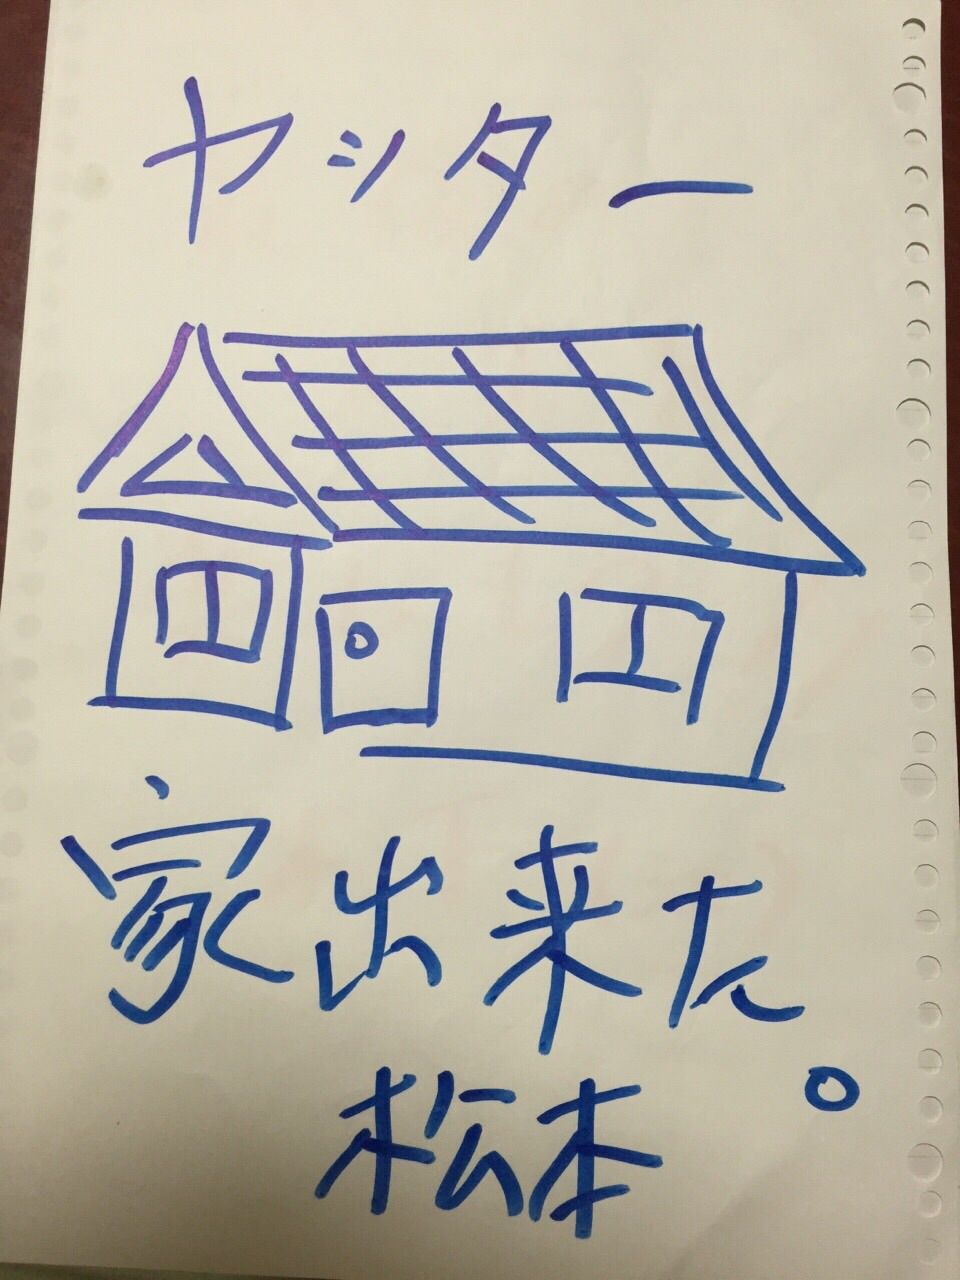 ヤッター
家出来た。
松本